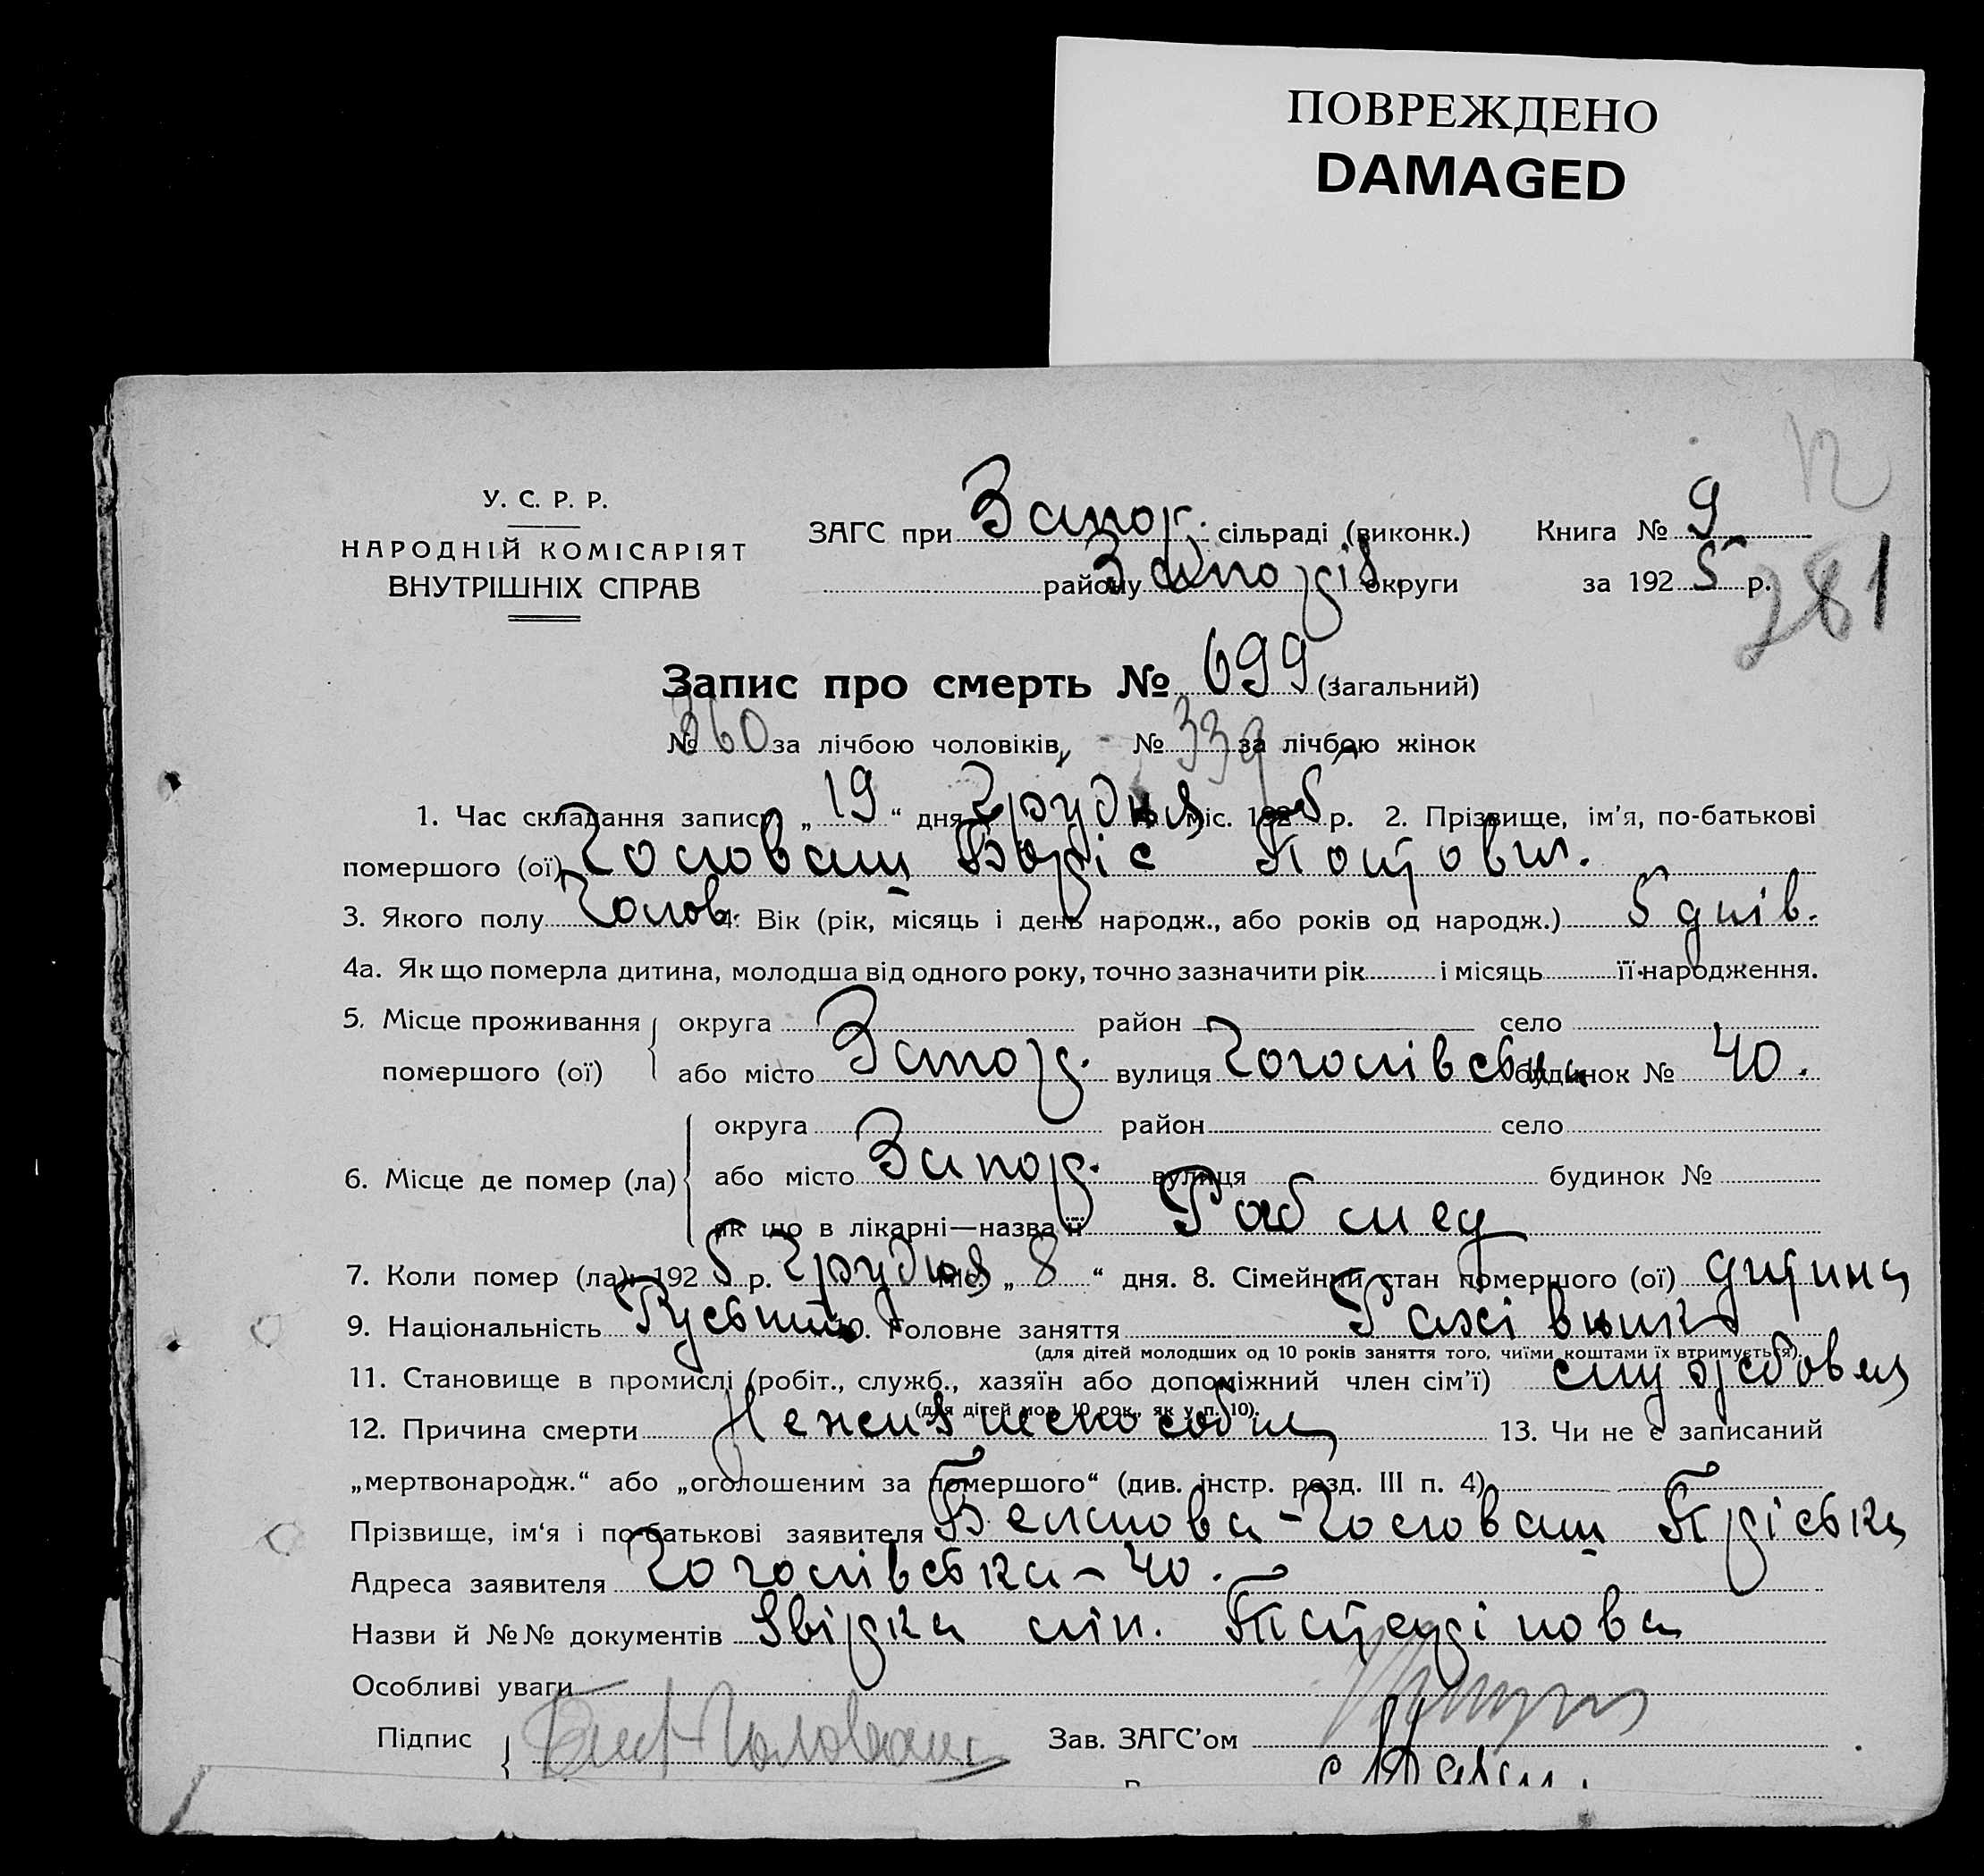 ПОВРЕЖДЕНО
DAMAGED
12
У. С. Р. Р.
НАРОДНІЙ КОМІСАРІЯТ
ВНУТРІШНІХ СПРАВ
ЗАГС при Запор. сільраді (виконк.) Книга № 9
району Запоріз. округи за 1925 р.
281
Запис про смерть № 699 (загальний)
№ 360 за лічбою чоловіків, № 339 за лічбою жінок
1. Час складання запису „19“ дня Грудня міс. 1925 р. 2. Прізвище, ім'я, по-батькові
помершого (ої) Головащ Боріс Петрович.
3. Якого полу Чолов. 4. Вік (рік, місяць і день народж., або років од народж.) 5 днів.
4а. Як що померла дитина, молодша від одного року, точно зазначити рік і місяць її народження.
5. Місце проживання округа район село
помершого (ої) або місто Запор. вулиця Гоголівська будинок № 40.
округа район село
6. Місце де помер (ла) або місто Запор. вулиця будинок №
як що в лікарні—назва її Рабмед
7. Коли помер (ла): 1925 р. Грудня міс. „8“ дня. 8. Сімейний стан помершого (ої) дитина
9. Національність 10. Головне заняття
(для дітей молодших од 10 років заняття того, чиїми коштами їх втримується).
11. Становище в промислі (робіт., служб., хазяїн або допоміжний член сім'ї) службовец
(для дітей мол. 10 рок., як у п. 10).
12. Причина смерти Нежиттеспособнц 13. Чи не є записаний
„мертвонародж.“ або „оголошеним за помершого“ (див. інстр. розд. III п. 4)
Прізвище, ім‘я і по-батькові заявителя Головащ
Адреса заявителя Гоголівська - 40.
Назви й №№ документів Звірка лік.
Особливі уваги
Підпис Головащ Зав. ЗАГС'ом